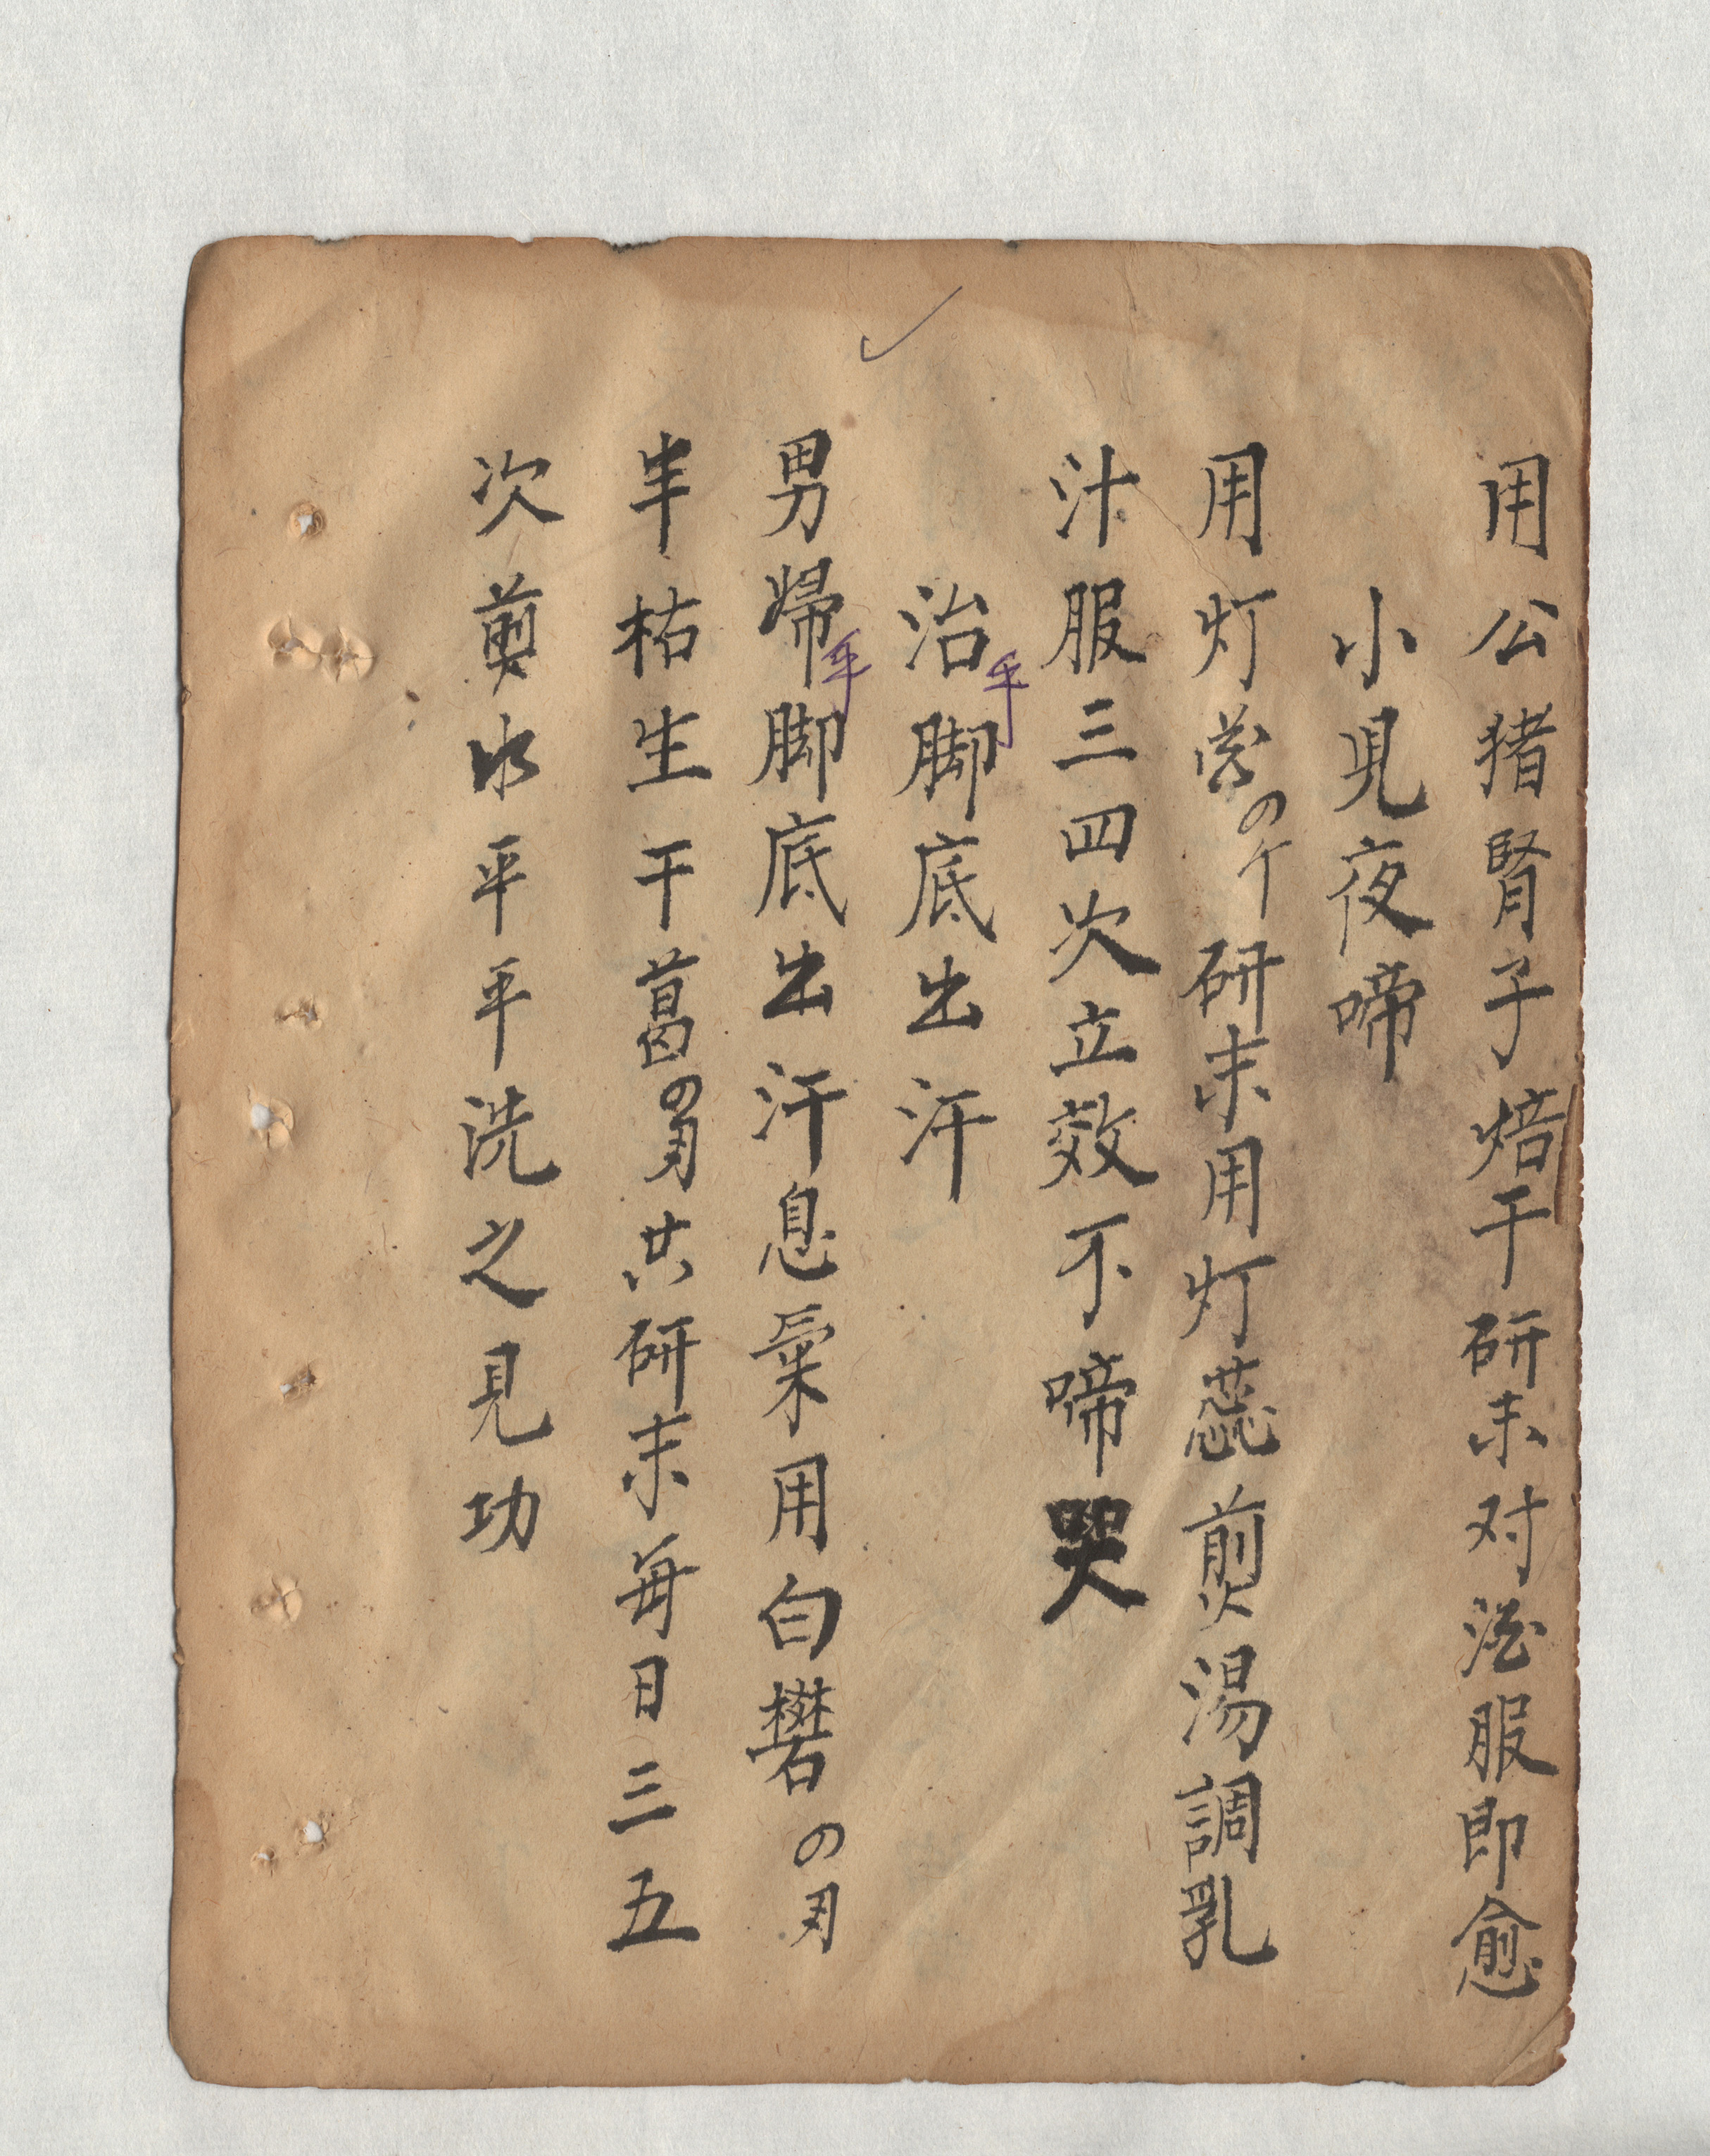 用公猪腎子焙干研末对酒服即愈
小児夜啼
用灯花の个研末用灯蕊煎湯調乳
汁服三四次立效不啼哭
治手脚底出汗
男婦手脚底出汗息氣用白礬の刄
半枯生干葛の刄共研末每日三五
次煎水平平洗之見功